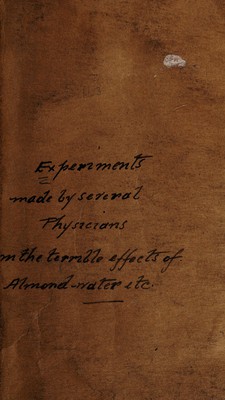 Experiments
made by several
Physicians
on the terrible effects of
Almond-water etc.